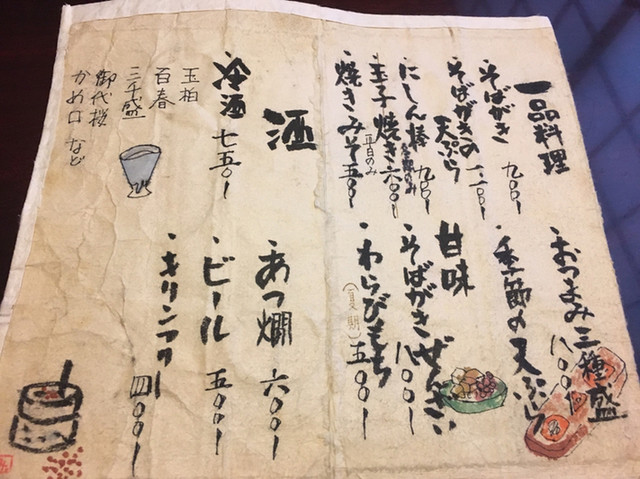 一品料理
・そばがき 九〇〇ー
・そばがきの天ぷら 一、二〇〇ー
・にしん棒 九〇〇ー
・玉子焼き 六〇〇ー
平日のみ
・焼きみそ 五〇〇ー
おつまみ三種盛 八〇〇ー
・季節の天ぷら
甘味
・そばがきぜんざい 八〇〇ー
・わらびもち 五〇〇ー
(夏期)
酒
・冷酒 七五〇ー
玉柏
百春
三千盛
御代櫻
かめ口 など
・あつ燗 六〇〇ー
・ビール 五〇〇ー
・キリンフリー 四〇〇ー